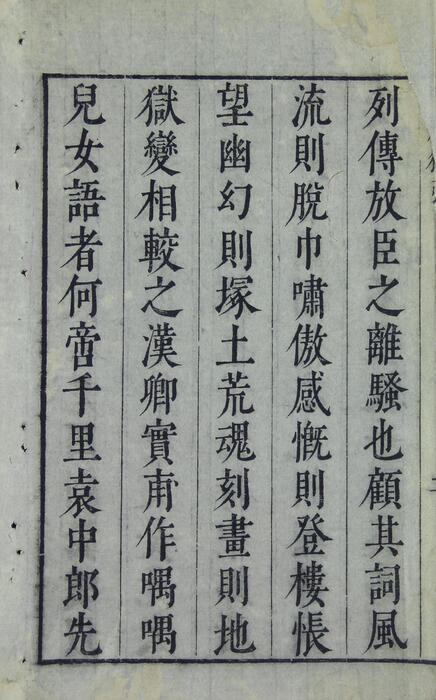 列傳放臣之離騷也顧其詞風
流則脫巾嘯傲感慨則登樓悵
望幽幻則塚土荒魂刻畫則地
獄變相較之漢卿實甫作喁喁
兒女語者何啻千里袁中郎先